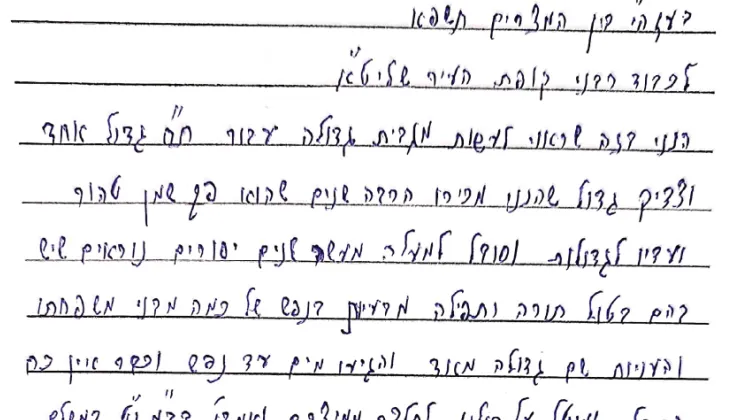 בעזהי" בין המצרים תשפא
לכבוד רבני קופת העיר שליט"א
הנני בזה שראוי לעשות מגבית גדולה עבור ת"ח גדול אחד
וצדיק גדול שהנני מכירו הרבה שנים שהוא פך שמן טהור
ועדיו לגדולות וסובל למעלה מעשר שנים יסורים נוראים שיש
בהם בטול תורה ותפילה מרעיון בנפש של כמה מבני משפחתו
והעניות שם גדולה מאוד והגיעו מים עד נפש וכבר אין כח